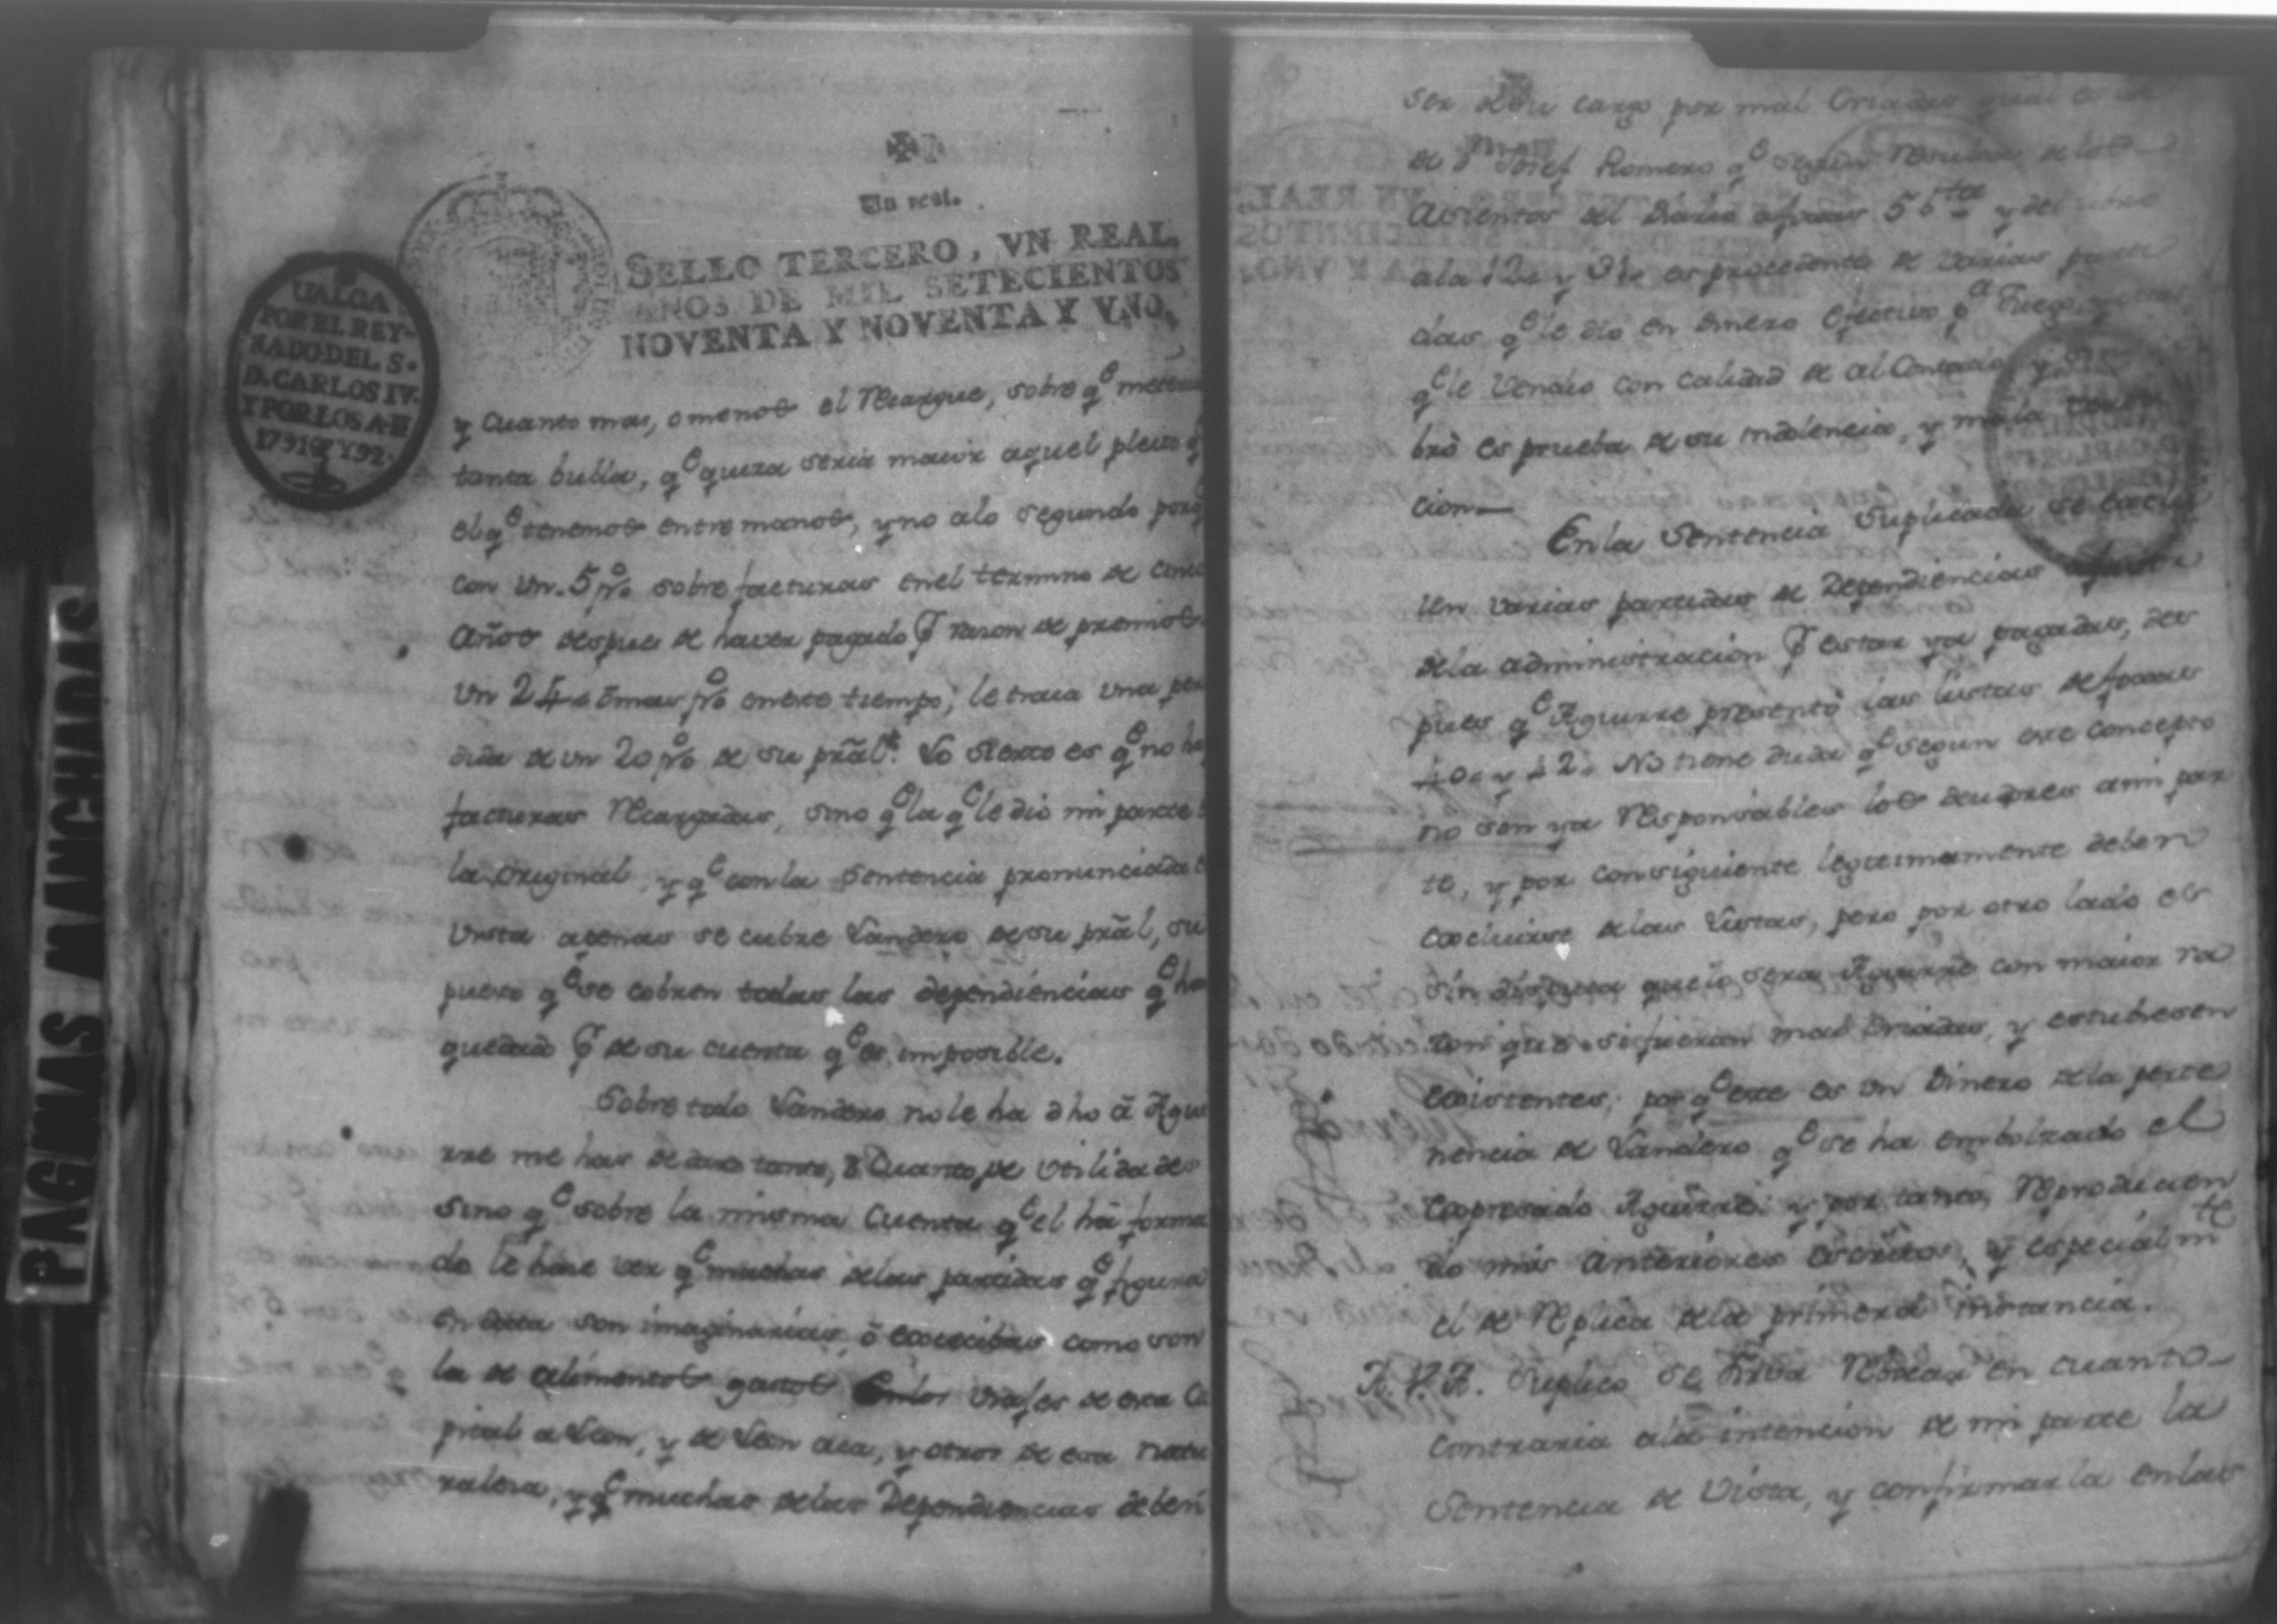 PAGINAS MANCHADAS
Un real.
SELLO TERCERO, VN REAL,
AÑOS DE MIL SETECIENTOS
NOVENTA Y NOVENTA Y VNO.
UALGA
POR EL REY-
NADO DEL S.
D. CARLOS IV.
Y POR LOS A. D
1791 Y 92.
y Cuanto mas, o menos el Recargue, sobre q.e meten
tanta bulla, q.e quiza seria maior aquel pleito q
el q.e tenemos entre manos, y no alo segundo porq
con un 5 p%o sobre facturas en el termino de cinco
años despues de haver pagado p razon de premios
un 24 o mas p%o en este tiempo, le traia una per
dida de un 20 p%o de su prãl. Lo cierto es q.e no ha
facturas Recargadas, sino q.e la q.e le dio mi parte
la original, y q.e con la sentencia pronunciada
Vista apenas se cubre Landero de su prãl, su
puesto q.e se cobren todas las dependiencias q.e han
quedado p de su cuenta q.e es imposible.
Sobre todo Landero no le ha dho ã Agui
rre me has de dar tanto, o Cuanto de utilidades
sino q.e sobre la misma Cuenta q.e el hã forma
do le hace ver q.e muchas delas partidas q.e figuran
en data son imaginarias, õ excecibas como son
la de alimentos gastos viajes de esta Ca
pital a Leon, y de Leon aca, y otros de esa natu
raleza, y q.e muchas delas Dependiencias deben
ser de su cargo por mal Criadas qual es la
de D.n Josef Romero q.e segun Resulta de los
asientos del Diario afoxas 56 y del
ala 12 y es procedente de varias parti
das q.e le dio en dinero efectivo p.a
q.e le Vendio con calidad de al Contado y
bró es prueba de su indolencia, y mala
cion—
En la Sentencia Suplicada se exclu
ien varias partidas de Dependiencias
dela administracion p estar ya pagadas, des
pues q.e Aguirre presentó las listas de foxas
40 y 42. No tiene duda q.e segun este concepto
no son ya Responsables los deudores a mi par
te, y por consiguiente legitimamente deben
excluirse delas Listas, pero por otro lado es
sin disputa que lo sera Aguirre con maior ra
zon que si fueran mal Criadas, y estubiesen
existentes, por q.e este es un Dinero dela perte
nencia de Landero q.e se ha embolzado el
expresado Aguirre: y por tanto, Reproducien
do mis anteriores escritos, y especialm.te
el de Replica dela primera instancia.
A. V. A. Suplico se sirva Revocar en cuanto
contraria ala intencion de mi parte la
Sentencia de Vista, y confirmarla en las